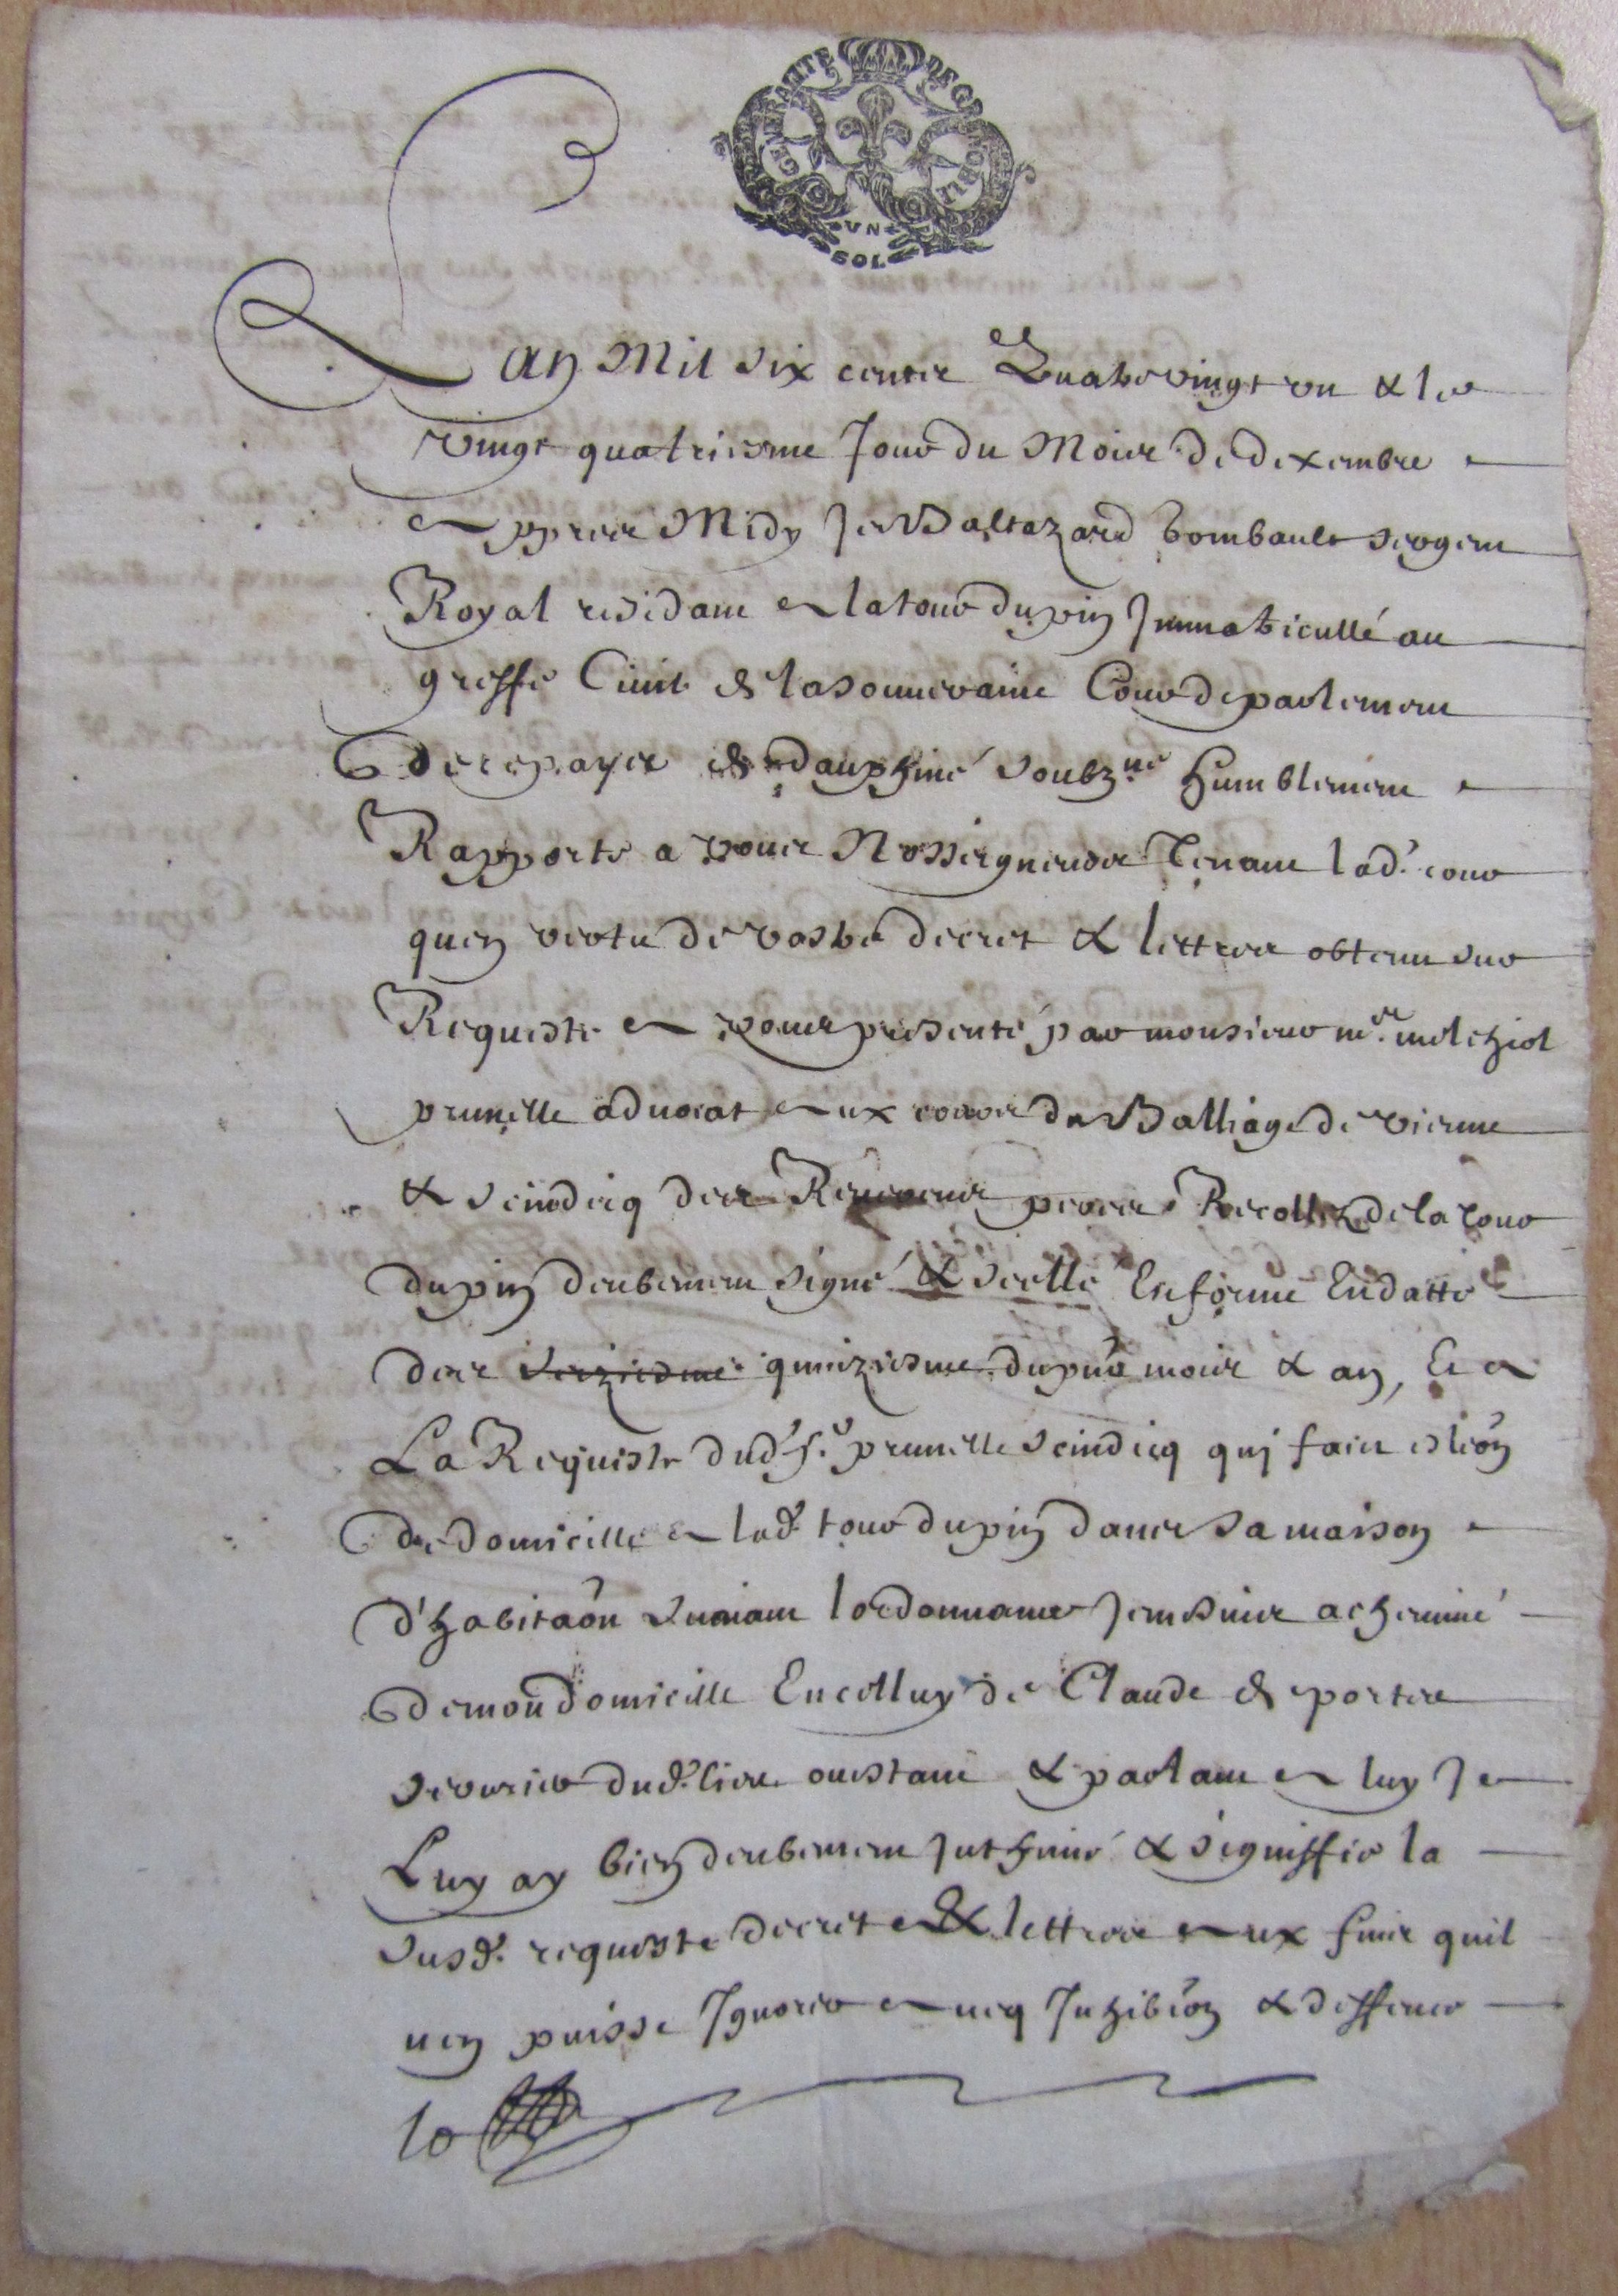 GENERALITE DE GRENOBLE
VN SOL
Lan Mil six centz Quatrevingt un & le
vingt quatriesme Jour du Mois de dexembre
appres Midy Je Baltazard bombault sergent
Royal residant a latour dupin Immatricullé au
greffe Civil de la souveraine Cour de parlement
de ce payes de dauphiné soubzné humblement
Rapporte a vous Nosseigneurs Tenant lad. cour
quen vertu de vostre decret & lettres obtenu sur
Requeste a vous presenté par monsieur mr. melchiol
prunelle advocat aux cours du Balliage de vienne
& scindicq des Reverens peres Recollez de la tour
dupin deubement signé & scellé En forme En datte
des seiziesme quinziesme du pnt mois & an, Et a
La Requeste dud. sr. prunelle scindicq quj faict esleon
de domicille a lad. tour dupin dans sa maison
d'habitaon suivant lordonnance Je me suis acheminé
de mon domicille En celluy de Claude de portes
serurier dud. lieu ou estant & parlant a luy Je
Luy ay bien deubement Inthimé & signiffié la
susd. requeste decret & lettres aux fins quil
nen puisse Ignorer avecq Inhibion & deffence